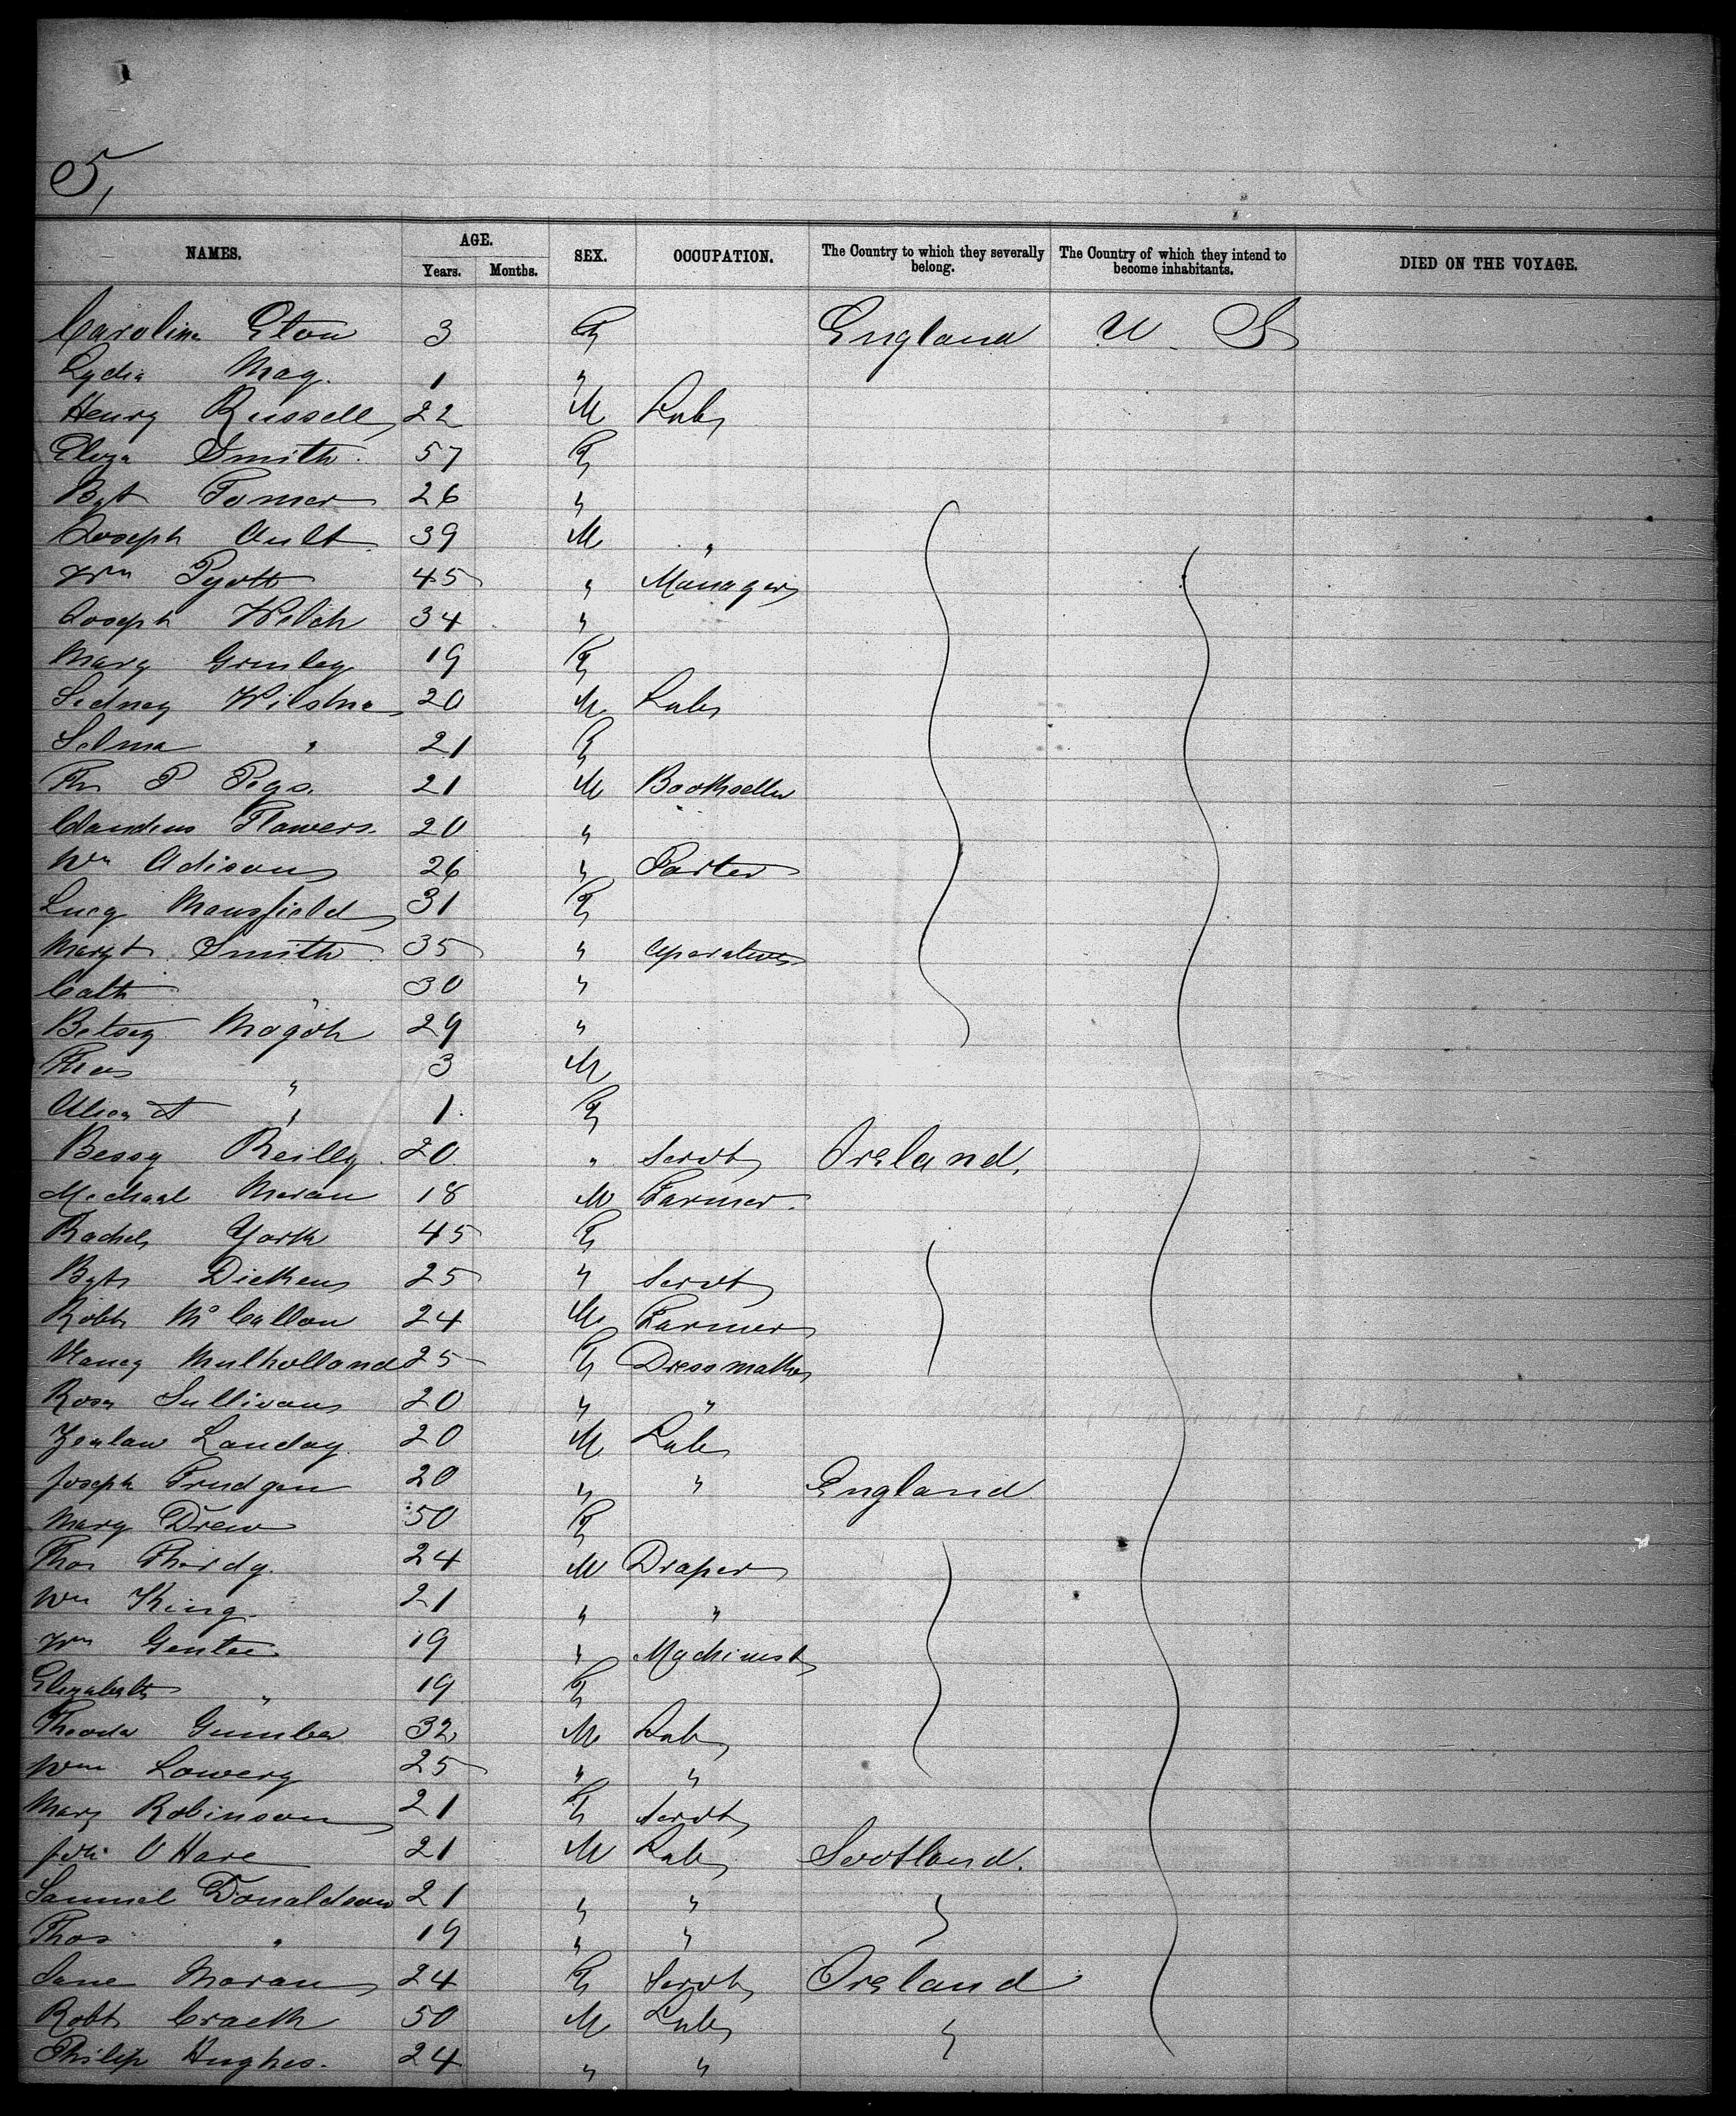 5,
NAMES. AGE. SEX. OCCUPATION. The Country to which they severally belong. The Country of which they intend to become inhabitants. DIED ON THE VOYAGE.
Years. Months.
Caroline Eton 3 F England U. S
Lydia May. 1 "
Henry Russell 22 M Lab
Eliza Smith. 57 F
Bgt 26 "
Joseph Ault 39 M "
Wm Pyott 45 " Manager
Joseph Welch 34 "
Mary Grmley 19 F
Sidney 20 M Lab
Selma " 21 F
Ths P 21 M Bookseller
Flowers. 20 "
Wm Adison 26 " Porter
Lucy Mansfield 31 F
Margt Smith 35 " Operative
Cath " 30 "
Betsey 29 "
Thos " 3 M
" 1. F
Bessy Reilly 20 " Servt Ireland.
Michael Moran 18 M Farmer.
Rachel York 45 F
Bgt Dickens 25 " Servt
Robt McCallon 24 M Farmer
Nancy Mulholland 25 F Dressmaker
Rosa Sullivan 20 " "
Landay. 20 M Lab
Joseph Prudgen 20 " " England
Mary Drew 50 F
Thos 24 M Draper
Wm King. 21 " "
Wm Gentee 19 " Machinist
Elizabeth " 19 F
32 M Lab
Wm Lowery 25 " "
Mary Robinson 21 F Servt
O Hare 21 M Lab Scotland.
Samuel Donaldson 21 " " "
Thos " 19 " "
Jane Moran 24 F Servt Ireland
Robt 50 M Lab "
Philip Hughes. 24 " "